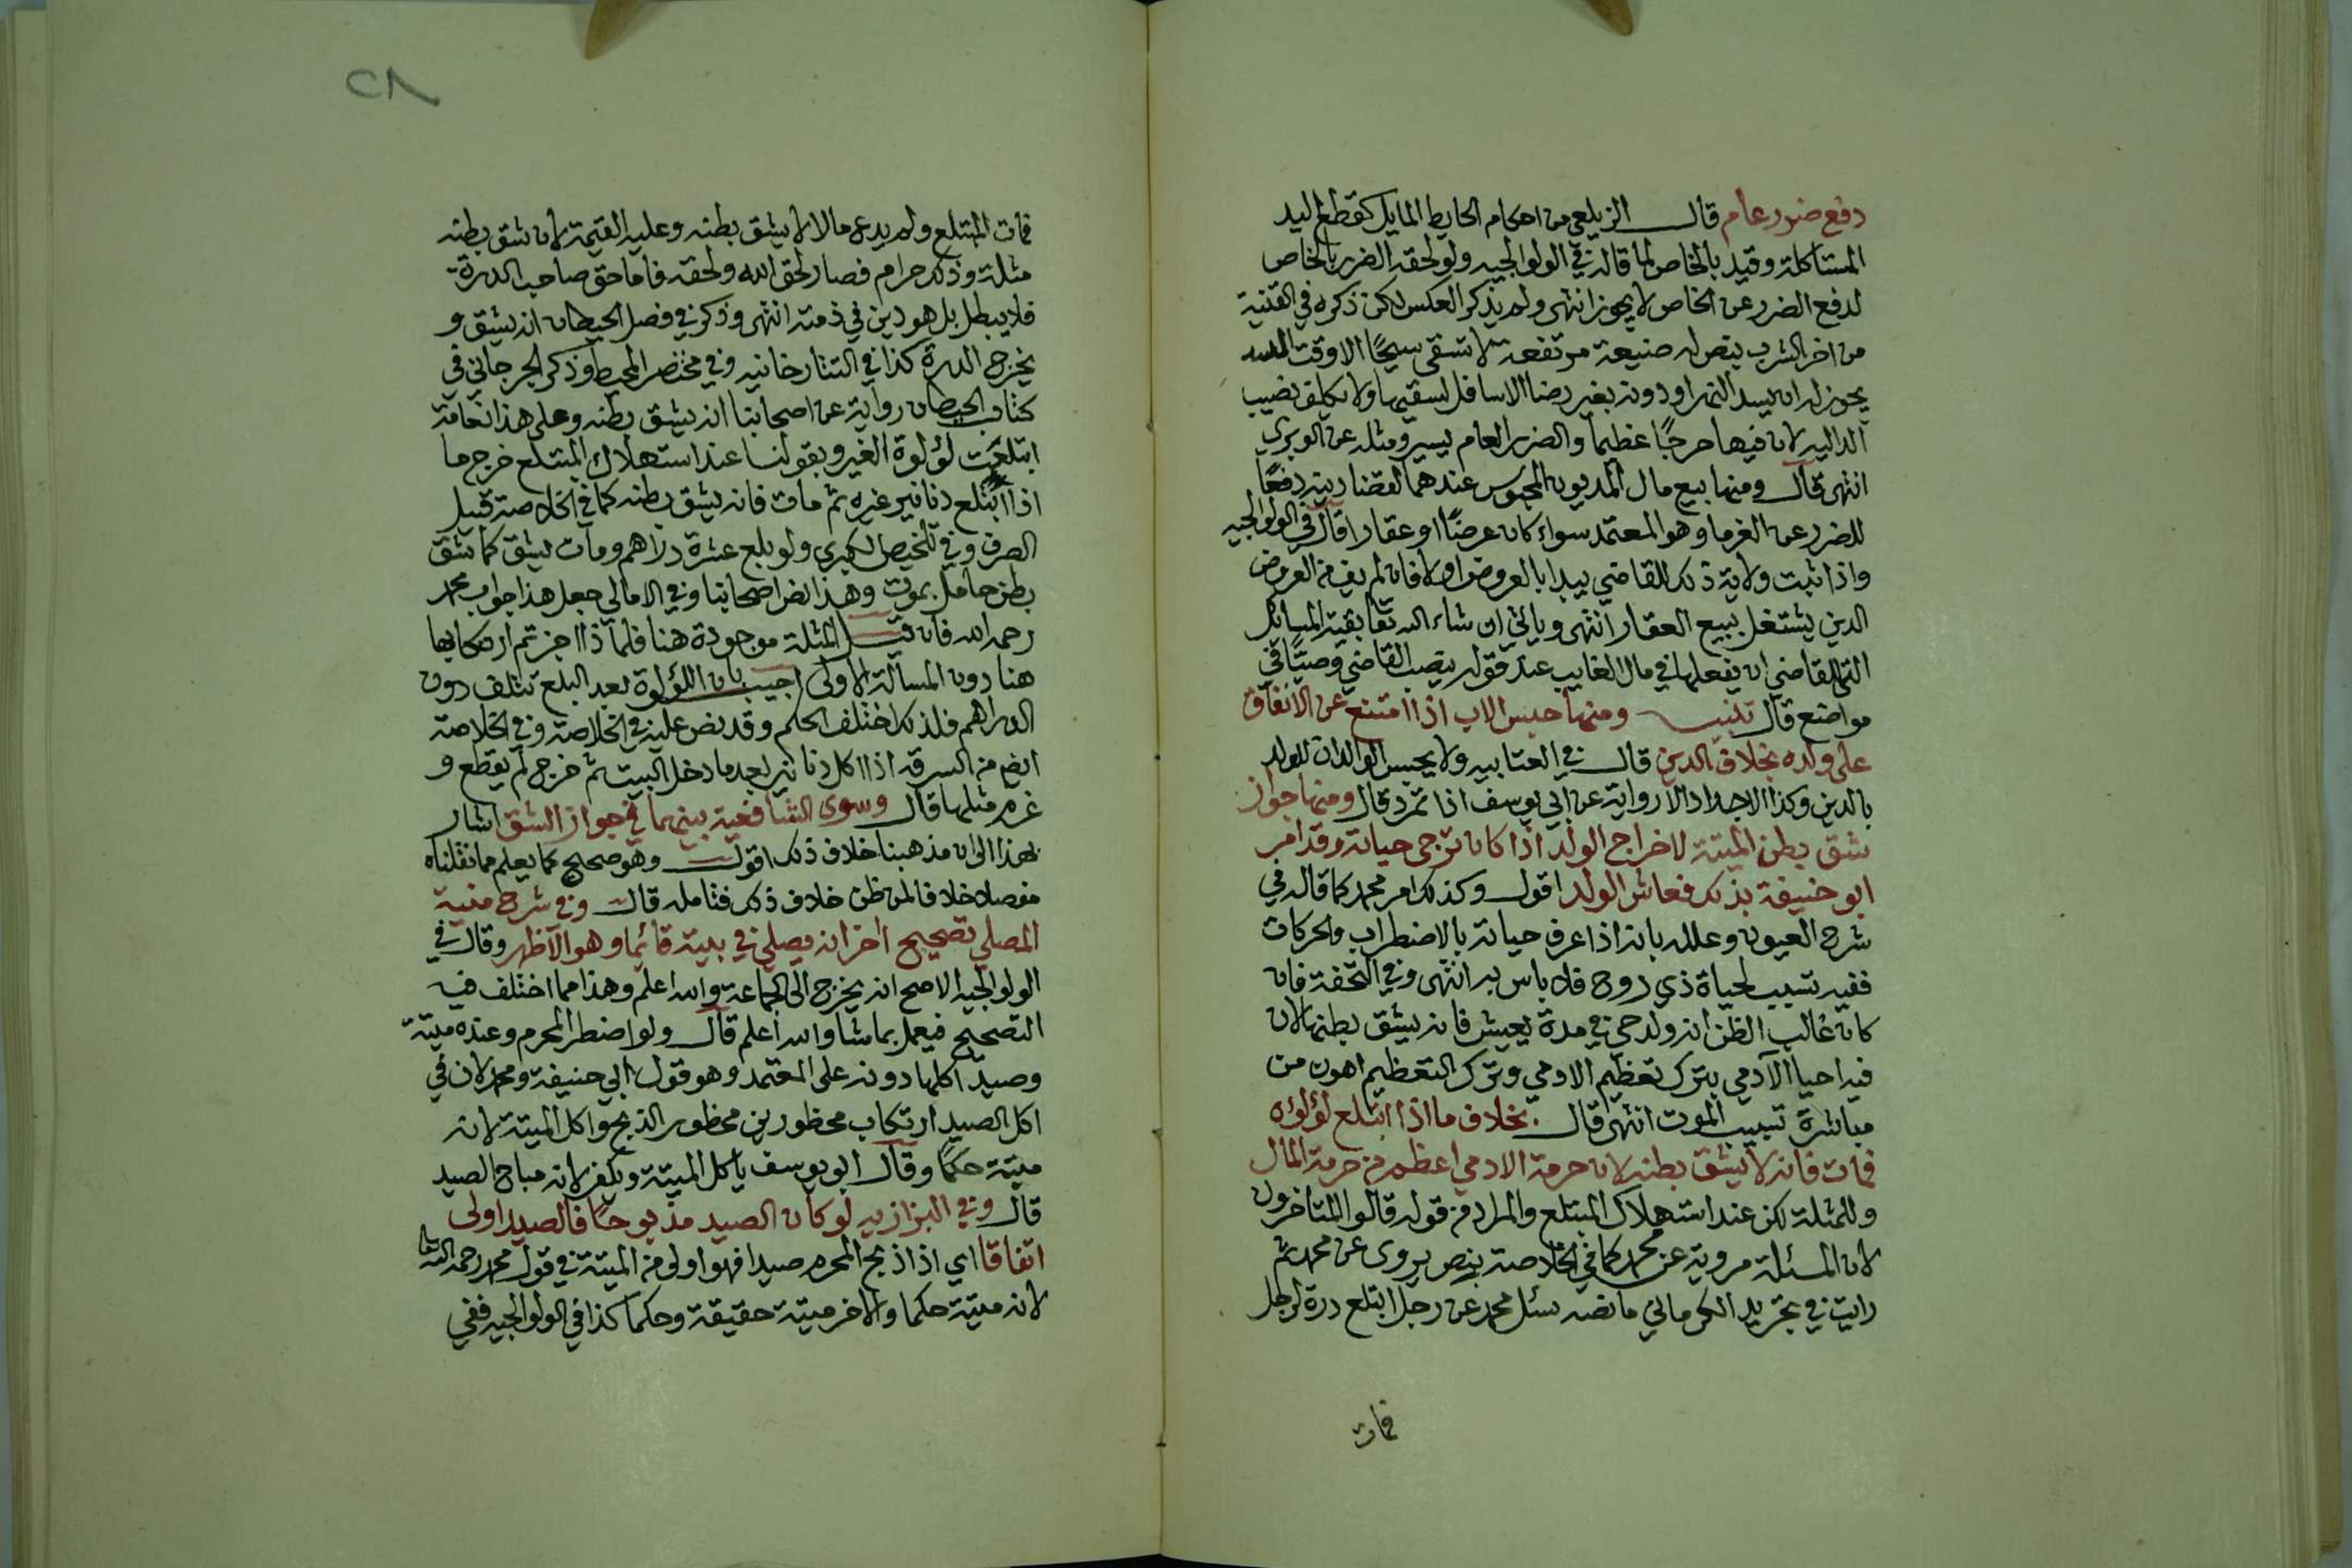 دفع ضرر عام قال الزيلعي من احكام الحايط المايل كقطع اليد
المتاكلة وقيد بالخاص لما قاله في الولوالجيه ولو لحقه الضرر بالخاص
لدفع الضرر عن الخاص لا يجوز انتهى ولم يذكر العكس لكن ذكره في القنية
من اخر الشرب بنص له صنيعة مرتفعة لا تسقى سيحًا الا وقت
يجوز له ان يسد النهر او دونه بغير رضا الاسافل لسقيها ولا يكلف نصيب
الداليه لان فيها حرجًا عظيما والضرر العام يسير ومثله عن الوبري
انتهى قال ومنها بيع مال المديون المحبوس عندهما لقضا دينه دفعًا
للضرر عن الغرما وهو المعتمد سواء كان عرضًا او عقارا اقال في الولوالجيه
واذا ثبت ولاية ذلك للقاضي يبدا بالعروض اولا فان لم يف من العروض
الدين يشتغل ببيع العقار انتهى وياتي ان شاء الله تعا بقية المسائل
التي للقاضي ان يفعلها في مال الغايب عند قوله ينصب القاضي وصيًا في
مواضع قال تذنيب ومنها حبس الاب اذا امتنع عن الانفاق
على ولده بخلاف الدين قال في العتابيه ولا يحبس الوالدان للولد
بالدين وكذا الاجداد الا رواية عن ابي يوسف اذا تمرد قال ومنها جواز
شق بطن الميتة لاخراج الولد اذا كان ترجى حياته وقد امر
ابو حنيفة بذلك فعاش الولد اقول وكذلك امر محمد كما قاله في
شرح العيون وعلله بانه اذا عرف حياته بالاضطراب والحركات
ففيه تسبيب لحياة ذي روح فلا باس به انتهى وفي التحفة فان
كان غالب الظن انه ولد حي في مدة يعيش فانه يشق بطنها لان
فيه احيا الآدمي بترك تعظيم الادمي وترك التعظيم اهون من
مباشرة تسبيب الموت انتهى قال بخلاف ما اذا ابتلع لؤلؤه
فمات فانه لا يشق بطنه لان حرمة الادمي اعظم من حرمة المال
وللمثلة لكن عند استهلاك المبتلع والمراد من قوله قالوا المتاخرون
لان المسئلة مروية عن محمد كما في الخلاصة بنص يروى عن محمد ثم
رايت في تجريد الكرماني ما نصه سئل محمد عن رجل ابتلع درة لرجل
فمات
٢٨
فمات المبتلع ولم يدع مالا لا يشق بطنه وعليه القيمة لان شق بطنه
مثلة وذلك حرام فصار لحق الله ولحقه فاما حق صاحب الدرة
فلا يبطل بل هو دين في ذمته انتهى وذكر في فصل الحيطان انه يشق و
يخرج الدرة كذا في التتارخانيه وفي مختصر المحيط وذكر الجرجاني في
كتاب الحيطان رواية عن اصحابنا انه يشق بطنه وعلى هذا نعامة
ابتلعت لؤلوة الغير وبقولنا عند استهلاك المبتلع خرج ما
اذا ابتلع دنانير غيره ثم مات فانه يشق بطنه كما في الخلاصة قبيل
الصرف وفي تلخيص الكبرى ولو بلع عشرة دراهم ومات يشق كما شق
بطن حامل بموت وهذا نص اصحابنا وفي الامالي جعل هذا جواب محمد
رحمه الله فان قيل المثلة موجودة هنا فلما ذا اجزتم ارتكابها
هنا دون المسالة الاولى اجيب بان اللؤلوة بعد البلع تتلف دون
الدراهم فلذلك اختلف الحكم وقد نص عليه في الخلاصة وفي الخلاصة
ايضا من السرقه اذا اكل دنانير بعد ما دخل البيت ثم خرج لم يقطع و
غرم مثلها قال وسوى الشافعية بينهما في جواز الشق اشار
بهذا الى ان مذهبنا خلاف ذلك اقول وهو صحيح كما يعلم مما نقلناه
مفصلا خلافا لمن ظن خلاف ذلك فتامله قال وفي شرح منية
المصلي تصحيح اخر انه يصلي في بيته قائما وهو الاظهر وقال في
الولوالجيه الاصح انه يخرج الى الجماعة والله اعلم وهذا مما اختلف فيه
التصحيح فيعمل بما شا والله اعلم قال ولو اضطر المحرم وعنده ميتة
وصيد اكلها دونه على المعتمد وهو قول ابي حنيفة ومحمد لان في
اكل الصيد ارتكاب محظورين محظور الذبح واكل الميتة لانه
ميتة حكمًا وقال ابو يوسف ياكل الميتة ويكفر لانه مباح الصيد
قال وفي البزازيه لو كان الصيد مذبوحًا فالصيد اولى
اتفاقا اي اذا ذبح المحرم صيدا فهو اولى من الميتة في قول محمد رحمه الله تعا
لانه ميتة حكما والاخر ميتة حقيقة وحكما كذا في الولوالجيه ففي